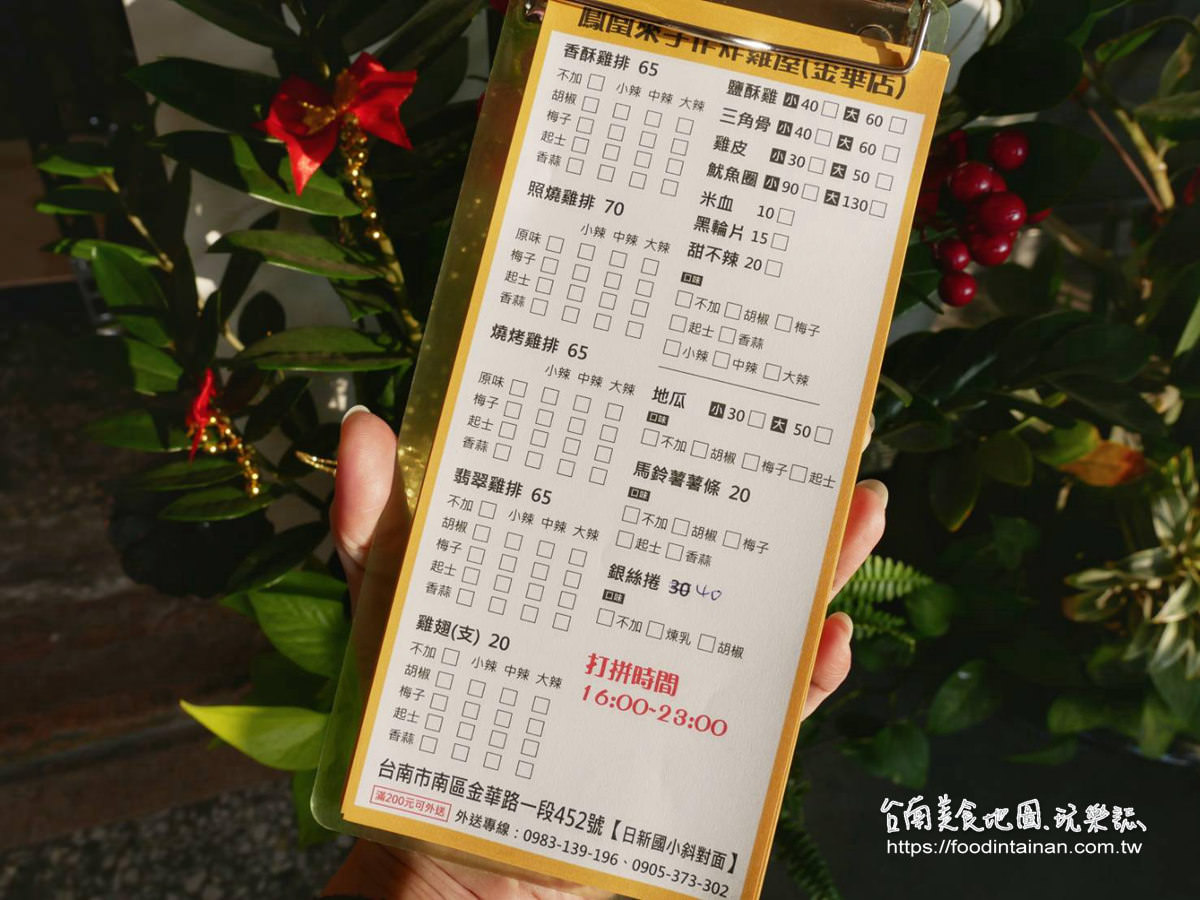 鳳凰來手作炸雞屋(金華店)
香酥雞排 65
小辣 中辣 大辣
不加
胡椒
梅子
起士
香蒜
照燒雞排 70
小辣 中辣 大辣
原味
梅子
起士
香蒜
燒烤雞排 65
小辣 中辣 大辣
原味
梅子
起士
香蒜
翡翠雞排 65
小辣 中辣 大辣
不加
胡椒
梅子
起士
香蒜
雞翅(支) 20
小辣 中辣 大辣
不加
胡椒
梅子
起士
香蒜
鹽酥雞 小 40 大 60
三角骨 小 40 大 60
雞皮 小 30 大 50
魷魚圈 小 90 大 130
米血 10
黑輪片 15
甜不辣 20
口味
不加 胡椒 梅子
起士 香蒜
小辣 中辣 大辣
地瓜 小 30 大 50
口味
不加 胡椒 梅子 起士
馬鈴薯薯條 20
口味
不加 胡椒 梅子
起士 香蒜
銀絲捲 30 40
口味
不加 煉乳 胡椒
打拼時間
16:00~23:00
台南市南區金華路一段452號【日新國小斜對面】
滿200元可外送 外送專線：0983-139-196、0905-373-302
台南美食地圖.玩樂誌
https://foodintainan.com.tw